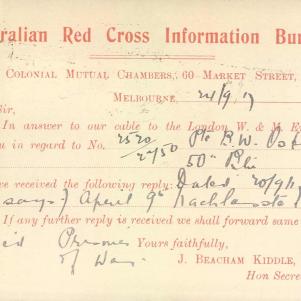 ralian Red Cross Information Bur
Colonial Mutual Chambers, 60 Market Street,
Melbourne, 24/9/17
Sir,
In answer to our cable to the London W. & M. E
u in regard to No. 2520 Pte B.W.
50th
ve received the following reply: Dated 20/9/17
says April 9th
If any further reply is received we shall forward same
Prisoner Yours faithfully,
of War J. Beacham Kiddle,
Hon Secre